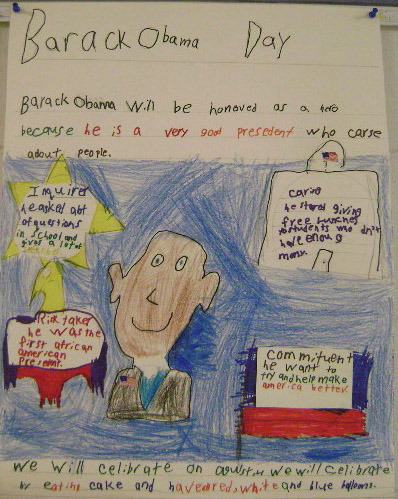 Barack Obama Day
Barack Obama will be honored as a hero
because he is a very good presedent who carse
adout people.
Inquirer
he asked alot
of questions
in school and
gives a lot of
caring
he stared giving
free lunches
to students who din't
have enoug
mony.
Risk taker
he was the
first african
american
present.
commituent
he want to
try and help make
america better.
We will celibrate on we will celibrate
by eating cake and have red, white and blue